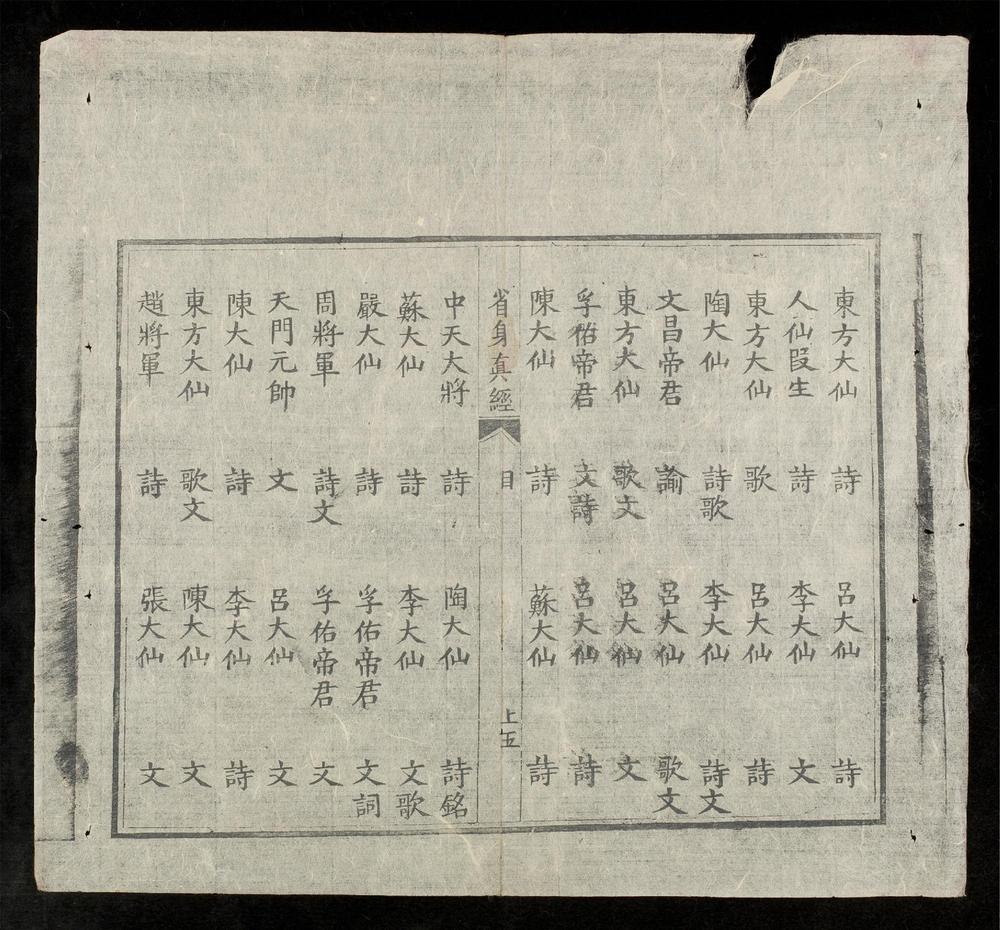 東方大仙 詩 呂大仙 詩
人仙段生 詩 李大仙 文
東方大仙 歌 呂大仙 詩
陶大仙 詩歌 李大仙 詩文
文昌帝君 諭 呂大仙 歌文
東方大仙 歌文 呂大仙 文
孚佑帝君 文詩 呂大仙 詩
陳大仙 詩 蘇大仙 詩
省身真經 目 上五
中天大將 詩 陶大仙 詩銘
蘇大仙 詩 李大仙 文歌
嚴大仙 詩 孚佑帝君 文詞
周將軍 詩文 孚佑帝君 文
天門元帥 文 呂大仙 文
陳大仙 詩 李大仙 詩
東方大仙 歌文 陳大仙 文
趙將軍 詩 張大仙 文